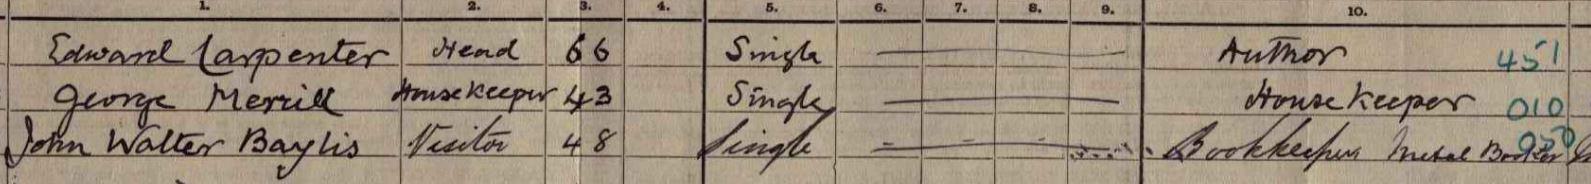 1. 2. 3. 4. 5. 6. 7. 8. 9. 10.
Edward Carpenter Head 66 Single Author 451
George Merrill Housekeeper 43 Single Housekeeper 010
John Walter Baylis Visitor 48 Single Bookkeeper Metal